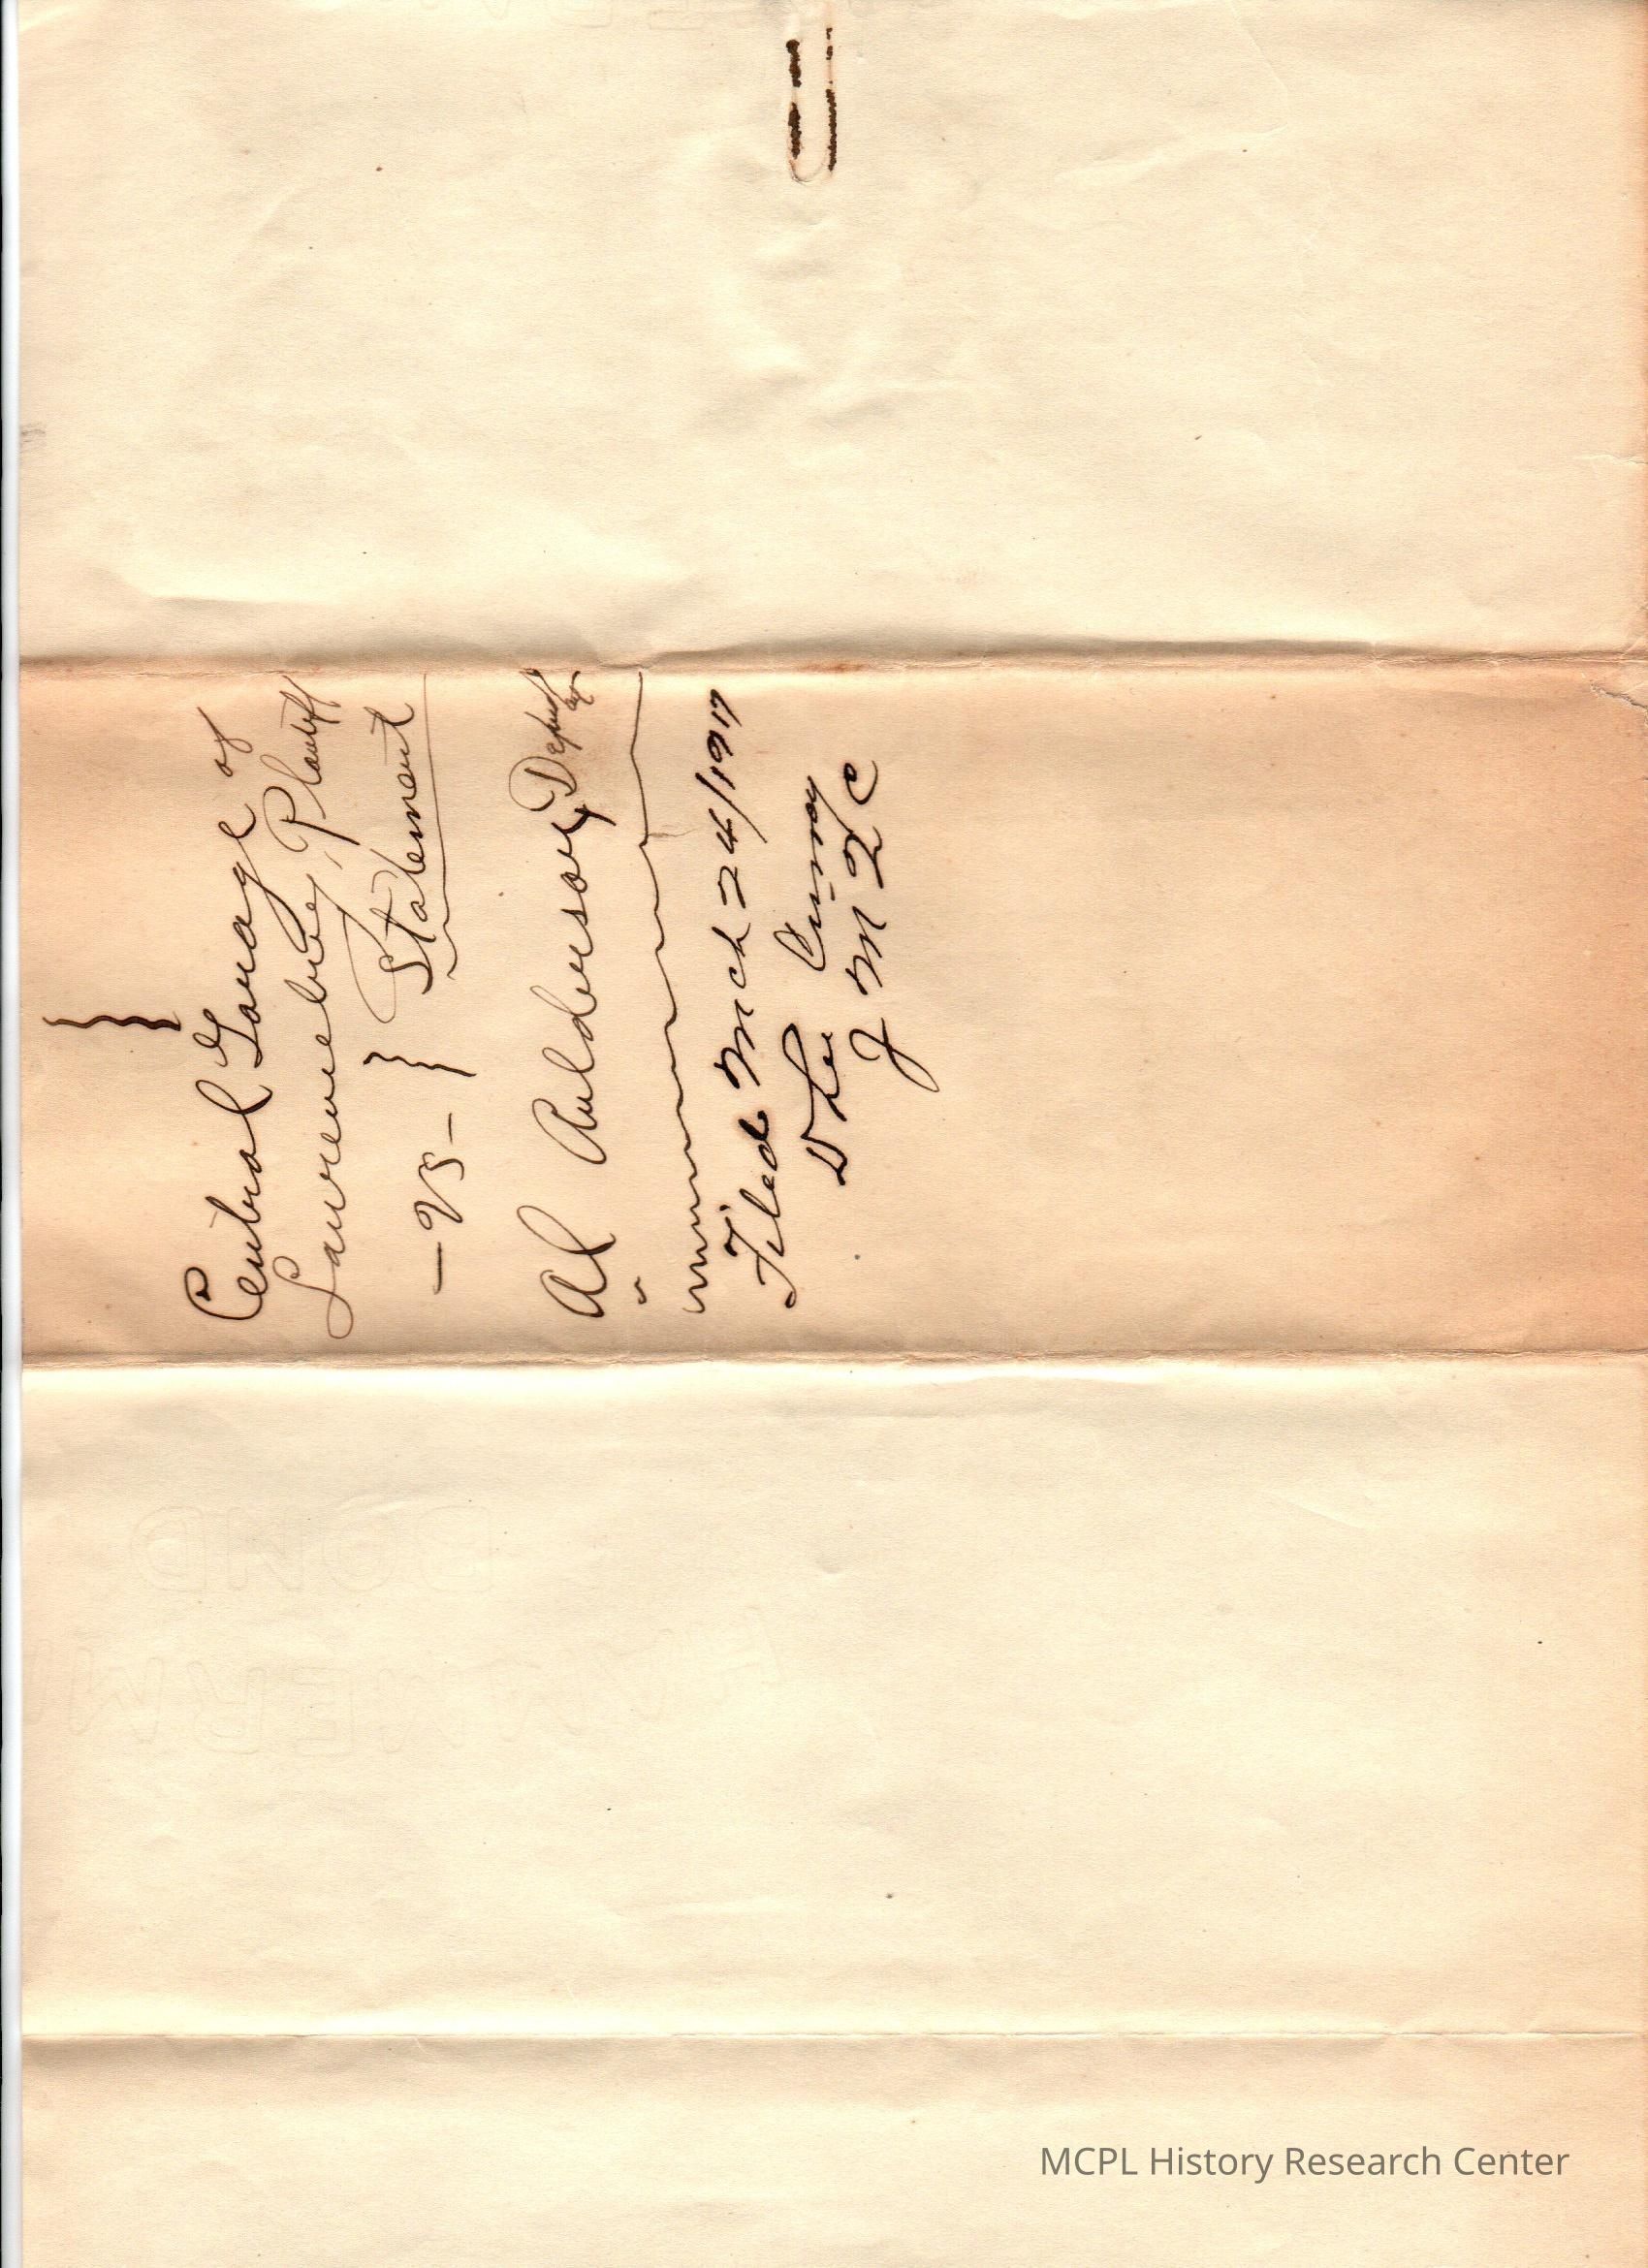 Central Garage of
Lawrenceburg, Plaintiff
-vs- } Statement
Al Anderson,
Filed Mch 24/1917
D Lee Currey
J M Z C
BOND
MCPL History Research Center